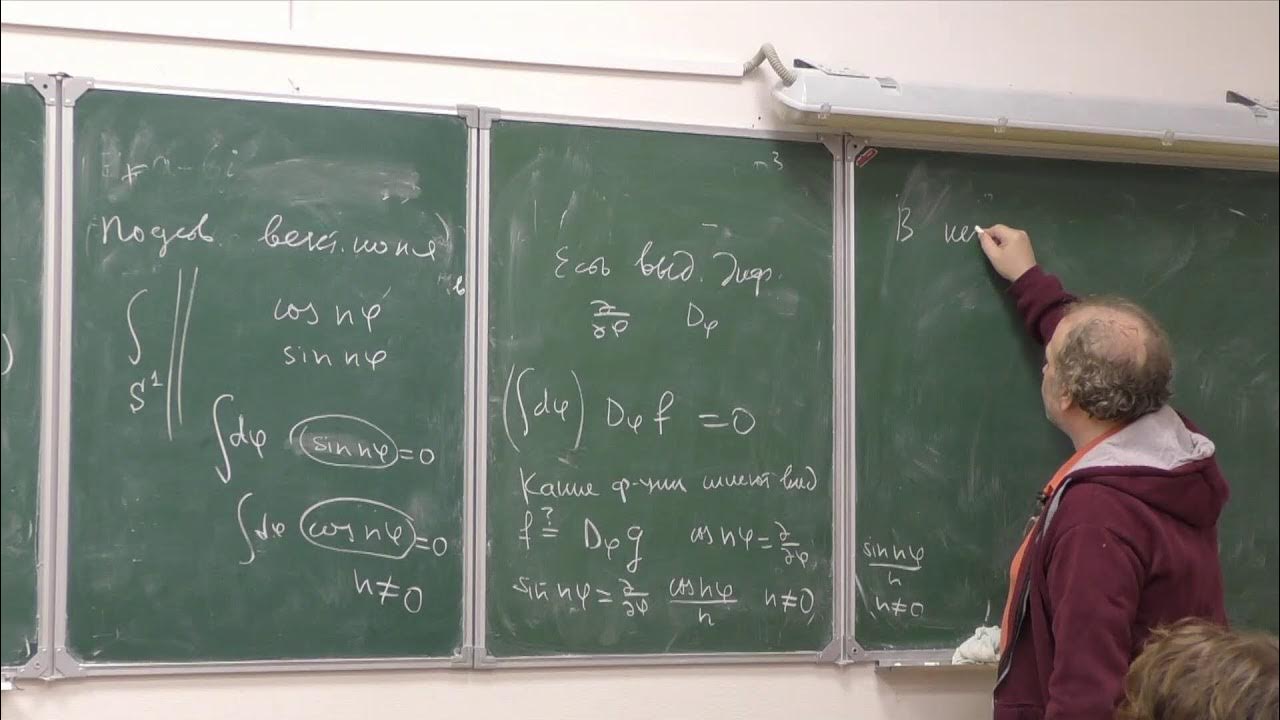 Подсв. вект. поля
∫ cos nφ
S¹ sin nφ
∫dφ sin nφ = 0
∫dφ cos nφ = 0
n ≠ 0
Есть выд. дифф.
∂/∂φ Dφ
(∫dφ) Dφ f = 0
Какие ф-ции имеют вид
f ?= Dφ g cos nφ = ∂/∂φ sin nφ/n
n ≠ 0
sin nφ = ∂/∂φ cos nφ/n n ≠ 0
В